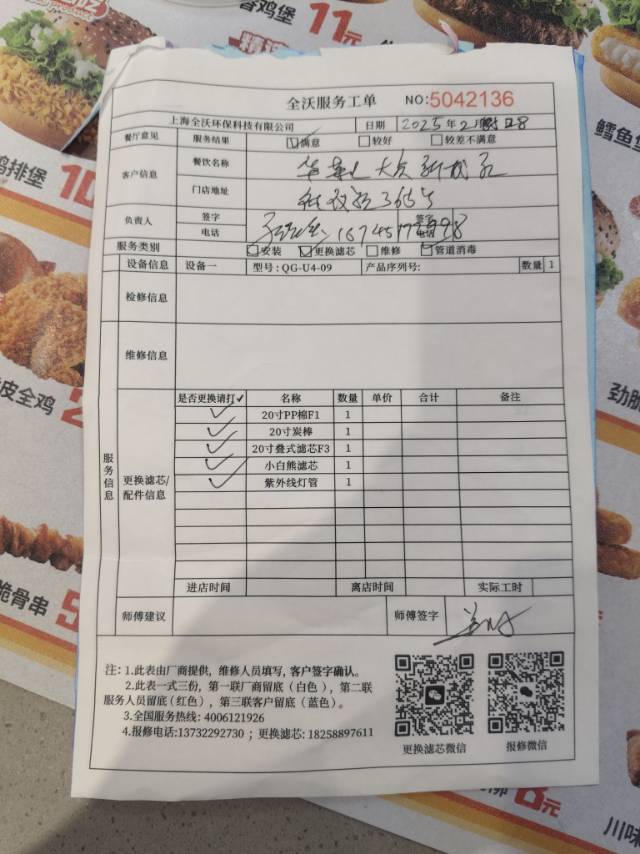 香鸡堡
11元
精选
全沃服务工单 NO:5042136
上海全沃环保科技有限公司 日期 2025年2月28
餐厅意见 服务结果 ☑满意 □较好 □较差不满意
客户信息 餐饮名称
门店地址 365号
负责人 签字 签字
电话 电话
服务类别 安装 更换滤芯 维修 管道消毒
设备信息 设备一 型号:QG-U4-09 产品序列号: 数量 1
检修信息
维修信息
服务信息
更换滤芯/配件信息
是否更换请打✓ 名称 数量 单价 合计 备注
✓ 20寸PP棉F1 1
✓ 20寸炭棒 1
✓ 20寸叠式滤芯F3 1
✓ 小白熊滤芯 1
✓ 紫外线灯管 1
进店时间 离店时间 实际工时
师傅建议 师傅签字
注: 1.此表由厂商提供, 维修人员填写, 客户签字确认。
2.此表一式三份, 第一联厂商留底(白色), 第二联
服务人员留底(红色), 第三联客户留底(蓝色)。
3.全国服务热线: 4006121926
4.报修电话:13732292730 ; 更换滤芯: 18258897611
更换滤芯微信 报修微信
鸡排堡
10
皮全鸡
2
脆骨串
5
鳕鱼堡
劲脆
8元
川味